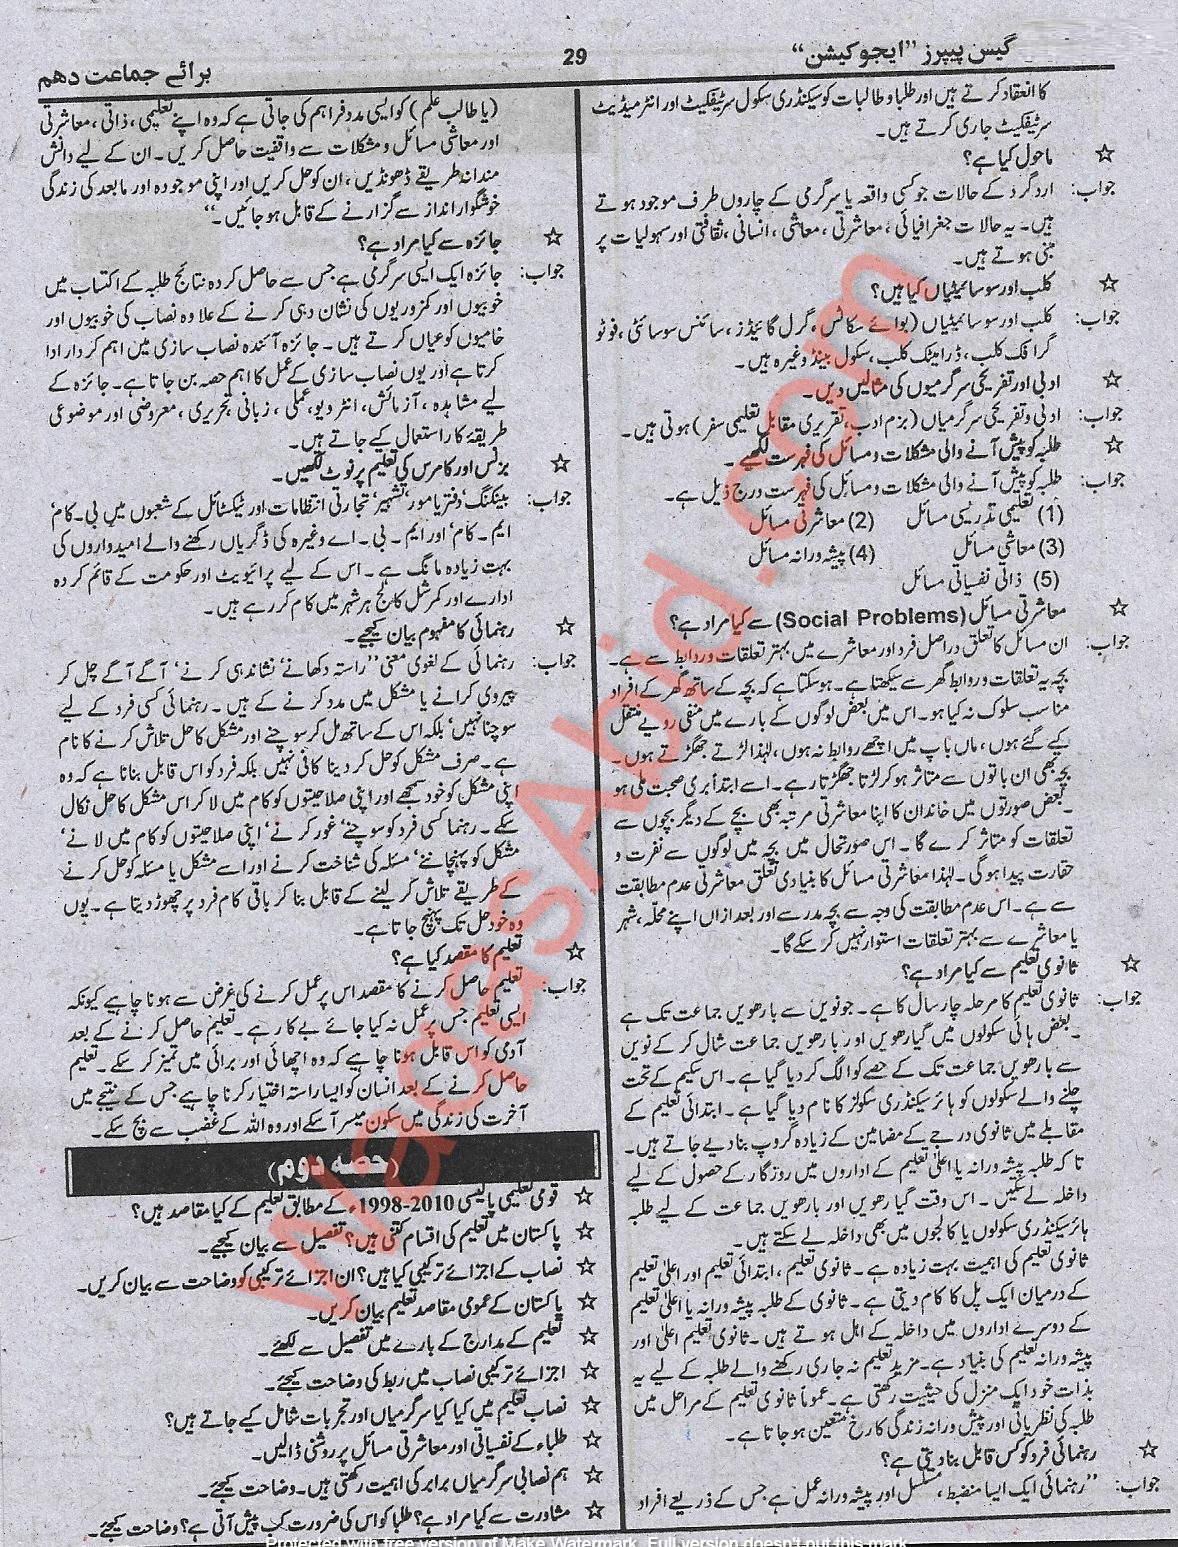 گیس پیپرز ”ایجوکیشن“
29
برائے جماعت دہم
کا انعقاد کرتے ہیں اور طلباو طالبات کو سیکنڈری سکول سرٹیفکیٹ اور انٹرمیڈیٹ
سرٹیفکیٹ جاری کرتے ہیں۔
☆ ماحول کیا ہے؟
جواب: اردگرد کے حالات جو کسی واقعہ یا سرگرمی کے چاروں طرف موجود ہوتے
ہیں۔ یہ حالات جغرافیائی، معاشرتی، معاشی، انسانی، ثقافتی اور سہولیات پر
مبنی ہوتے ہیں۔
☆ کلب اور سوسائیٹیاں کیا ہیں؟
جواب: کلب اور سوسائیٹیاں (بوائے سکاٹس، گرل گائیڈز، سائنس سوسائٹی، فوٹو
گرافک کلب، ڈرامیٹک کلب، سکول بینڈ وغیرہ ہیں۔
☆ ادبی اور تفریحی سرگرمیوں کی مثالیں دیں۔
جواب: ادبی و تفریحی سرگرمیاں (بزم ادب، تقریری مقابل تعلیمی سفر) ہوتی ہیں۔
☆ طلبہ کو پیش آنے والی مشکلات و مسائل کی فہرست لکھیے۔
جواب: طلبہ کو پیش آنے والی مشکلات و مسائل کی فہرست درج ذیل ہے۔
(1) تعلیمی تدریسی مسائل (2) معاشرتی مسائل
(3) معاشی مسائل (4) پیشہ ورانہ مسائل
(5) ذاتی نفسیاتی مسائل
☆ معاشرتی مسائل (Social Problems) سے کیا مراد ہے؟
جواب: ان مسائل کا تعلق دراصل فرد اور معاشرے میں بہتر تعلقات و روابط سے ہے۔
بچہ یہ تعلقات و روابط گھر سے سیکھتا ہے۔ ہو سکتا ہے کہ بچہ کے ساتھ گھر کے افراد
مناسب سلوک نہ کیا ہو۔ اس میں بعض لوگوں کے بارے میں منفی رویے منتقل
کیے گئے ہوں، ماں باپ میں اچھے روابط نہ ہوں، لہٰذا لڑتے جھگڑتے ہوں۔
بچہ بھی ان باتوں سے متاثر ہو کر لڑتا جھگڑتا رہے۔ اسے ابتداً بری صحبت ملی ہو
۔ بعض صورتوں میں خاندان کا اپنا معاشرتی مرتبہ بھی بچے کے دیگر بچوں سے
تعلقات کو متاثر کرے گا۔ اس صورتحال میں بچہ میں لوگوں سے نفرت و
حقارت پیدا ہوگی۔ لہٰذا معاشرتی مسائل کا بنیادی تعلق معاشرتی عدم مطابقت
سے ہے۔ اس عدم مطابقت کی وجہ سے بچہ مدرسے اور بعد ازاں اپنے محلّہ، شہر
یا معاشرے سے بہتر تعلقات استوار نہیں کر سکے گا۔
☆ ثانوی تعلیم سے کیا مراد ہے؟
جواب: ثانوی تعلیم کا مرحلہ چار سال کا ہے۔ جو نویں سے بارھویں جماعت تک ہے
۔ بعض ہائی سکولوں میں گیارھویں اور بارھویں جماعت شال کر کے نویں
سے بارھویں جماعت تک کے حصے کو الگ کر دیا گیا ہے۔ اس سکیم کے تحت
چلنے والے سکولوں کو ہائر سیکنڈری سکولز کا نام دیا گیا ہے۔ ابتدائی تعلیم کے
مقابلے میں ثانوی درجے کے مضامین کے زیادہ گروپ بنا دیے جاتے ہیں۔
تا کہ طلبہ پیشہ ورانہ یا اعلیٰ تعلیم کے اداروں میں روزگار کے حصول کے لیے
داخلہ لے سکیں۔ اس وقت گیارھویں اور بارھویں جماعت کے لیے طلبہ
ہائر سیکنڈری سکولوں یا کالجوں میں بھی داخلہ لے سکتے ہیں۔
ثانوی تعلیم کی اہمیت بہت زیادہ ہے۔ ثانوی تعلیم، ابتدائی تعلیم اور اعلیٰ تعلیم
کے درمیان ایک پل کا کام دیتی ہے۔ ثانوی کے طلبہ پیشہ ورانہ یا اعلیٰ تعلیم
کے دوسرے اداروں میں داخلہ کے اہل ہوتے ہیں۔ ثانوی تعلیم اعلیٰ اور
پیشہ ورانہ تعلیم کی بنیاد ہے۔ مزید تعلیم نہ جاری رکھنے والے طلبہ کے لیے یہ
بذات خود ایک منزل کی حیثیت رکھتی ہے۔ عموماً ثانوی تعلیم کے مراحل میں
طلبہ کی نظریاتی اور پیش ورانہ زندگی کا رخ متعین ہو جاتا ہے۔
☆ رہنمائی فرد کو کس قابل بنا دیتی ہے؟
جواب: ”رہنمائی ایک ایسا منضبط، مسلسل اور پیشہ ورانہ عمل ہے جس کے ذریعے افراد
(یا طالب علم) کو ایسی مدد فراہم کی جاتی ہے کہ وہ اپنے تعلیمی، ذاتی، معاشرتی
اور معاشی مسائل و مشکلات سے واقفیت حاصل کریں۔ ان کے لیے دانش
مندانہ طریقے ڈھونڈیں، ان کو حل کریں اور اپنی موجودہ اور مابعد کی زندگی
خوشگوار انداز سے گزارنے کے قابل ہو جائیں۔“
☆ جائزہ سے کیا مراد ہے؟
جواب: جائزہ ایک ایسی سرگرمی ہے جس سے حاصل کردہ نتائج طلبہ کے اکتساب میں
خوبیوں اور کمزوریوں کی نشان دہی کرنے کے علاوہ نصاب کی خوبیوں اور
خامیوں کو عیاں کرتے ہیں۔ جائزہ آئندہ نصاب سازی میں اہم کردار ادا
کرتا ہے اور یوں نصاب سازی کے عمل کا اہم حصہ بن جاتا ہے۔ جائزہ کے
لیے مشاہدہ، آزمائش، انٹرویو، عملی، زبانی تحریری، معروضی اور موضوعی
طریقۂ کا راستعمال کیے جاتے ہیں۔
☆ بزنس اور کامرس کی تعلیم پر نوٹ لکھیں۔
جواب: بینکنگ، دفتریامور، تشہیر، تجارتی انتظامات اور ٹیکسٹائل کے شعبوں میں بی۔کام،
ایم۔کام، اور ایم۔ بی۔ اے وغیرہ کی ڈگریاں رکھنے والے امیدواروں کی
بہت زیادہ مانگ ہے۔ اس کے لیے پرائیویٹ اور حکومت کے قائم کردہ
ادارے اور کمرشل کالج ہر شہر میں کام کر رہے ہیں۔
☆ رہنمائی کا مفہوم بیان کیجیے۔
جواب: رہنمائی کے لغوی معنی ”راستہ دکھانے، نشاندہی کرنے، آگے آگے چل کر
پیروی کرانے یا مشکل میں مدد کرنے کے ہیں۔ رہنمائی کسی فرد کے لیے
سوچنا نہیں، بلکہ اس کے ساتھ مل کر سوچنے اور مشکل کا حل تلاش کرنے کا نام
ہے۔ صرف مشکل کو حل کر دینا کافی نہیں بلکہ فرد کو اس قابل بنانا ہے کہ وہ
اپنی مشکل کو خود سمجھے اور اپنی صلاحیتوں کو کام میں لا کر اس مشکل کا حل نکال
سکے۔ رہنما کسی فرد کو سوچنے، غور کرنے، اپنی صلاحیتوں کو کام میں لانے،
مشکل کو پہچاننے، مسئلہ کی شناخت کرنے اور اسے مشکل یا مسئلہ کو حل کرنے
کے طریقے تلاش کر لینے کے قابل بنا کر باقی کام فرد پر چھوڑ دیتا ہے۔ یوں
وہ خود حل تک پہنچ جاتا ہے۔
☆ تعلیم کا مقصد کیا ہے؟
جواب: تعلیم حاصل کرنے کا مقصد اس پر عمل کرنے کی غرض سے ہونا چاہیے کیونکہ
ایسی تعلیم جس پر عمل نہ کیا جائے بے کار ہے۔ تعلیم حاصل کرنے کے بعد
آدمی کو اس قابل ہونا چاہے کہ وہ اچھائی اور برائی میں تمیز کر سکے۔ تعلیم
حاصل کرنے کے بعد انسان کو ایسا راستہ اختیار کرنا چاہیے جس کے نتیجے میں
آخرت کی زندگی میں سکون میسر آ سکے اور وہ اللہ کے غضب سے بچ سکے۔
(حصہ دوم)
☆ قومی تعلیمی پالیسی 2010-1998ء کے مطابق تعلیم کے کیا مقاصد ہیں؟
☆ پاکستان میں تعلیم کی اقسام کتنی ہیں؟ تفصیل سے بیان کیجیے۔
☆ نصاب کے اجزائے ترکیبی کیا ہیں؟ ان اجزائے ترکیبی کو وضاحت سے بیان کریں۔
☆ پاکستان کے عمومی مقاصد تعلیم بیان کریں۔
☆ تعلیم کے مدارج کے بارے میں تفصیل سے لکھئے۔
☆ اجزائے ترکیبی نصاب میں ربط کی وضاحت کیجئے۔
☆ نصاب تعلیم میں کیا کیا سرگرمیاں اور تجربات شامل کیے جاتے ہیں؟
☆ طلباء کے نفسیاتی اور معاشرتی مسائل پر روشنی ڈالیں۔
☆ ہم نصابی سرگرمیاں برابر کی اہمیت رکھتی ہیں۔ وضاحت کیجئے۔
☆ مشاورت سے کیا مراد ہے؟ طلبا کو اس کی ضرورت کب پیش آتی ہے؟ وضاحت کیجئے۔
WaqasAbid.com
Protected with free version of Make Watermark. Full version doesn't put this mark.